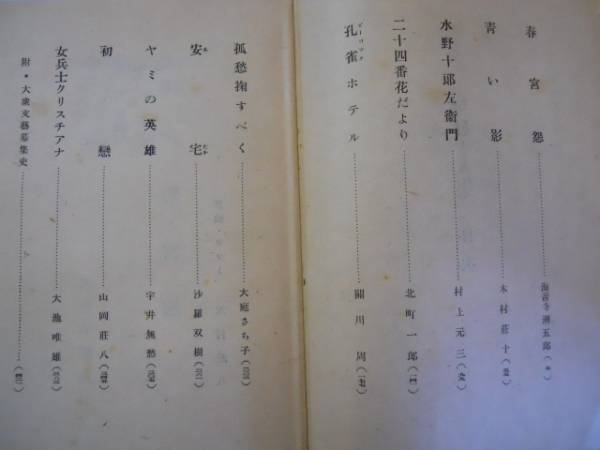 春宮怨……………海音寺潮五郎
青い影……………木村荘十
水野十郎左衛門……………村上元三
二十四番花だより……………北町一郎
孔雀ホテル……………関川周
ピーコック
孤愁掬すべく……………大庭さち子
安宅……………沙羅双樹
あたか
ヤミの英雄……………宇井無愁
初戀……………山岡荘八
女兵士クリスチアナ……………大池唯雄
附・大衆文藝募集史……………